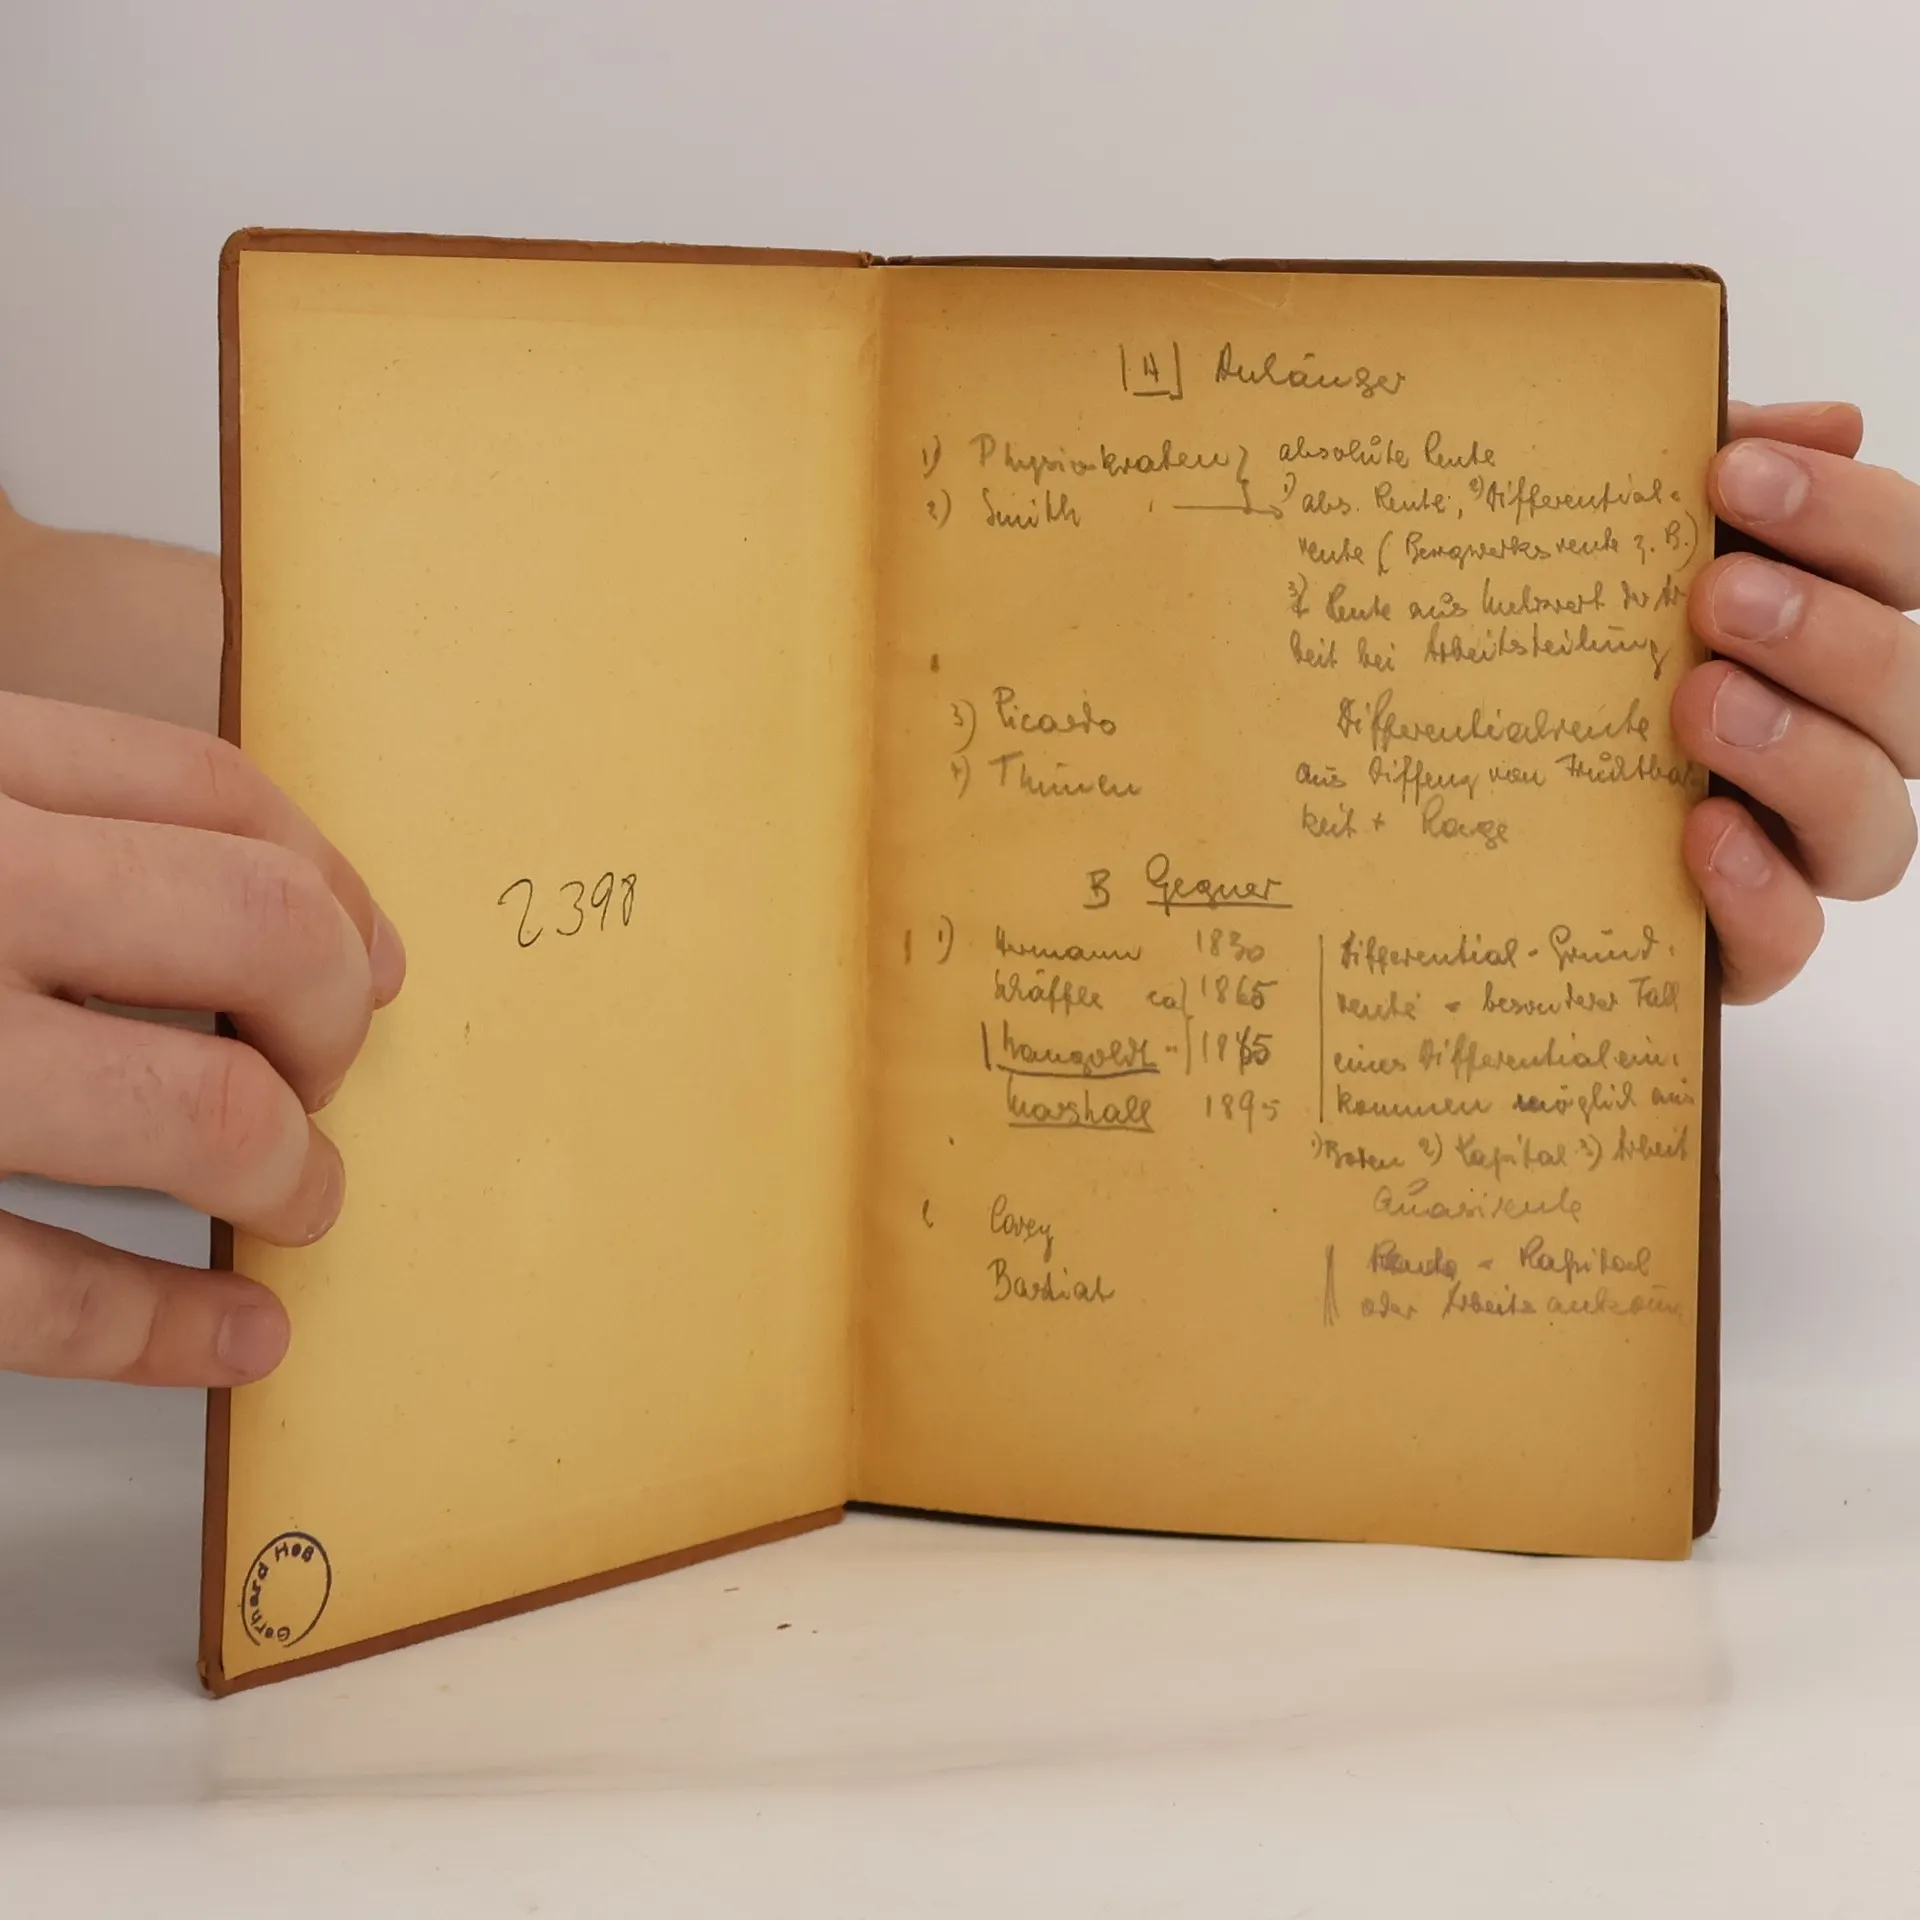 2398
Gerhard Heß
[A] Anhänger
1) Physiokraten } absolute Rente
2) Smith 1) abs. Rente; 2) Differential-
rente (Bergwerksrente z. B.)
3) Rente aus Mehrwert der Ar
beit bei Arbeitsteilung
3) Ricardo Differentialrente
4) Thünen aus von Fruchtbar
keit + Lage
B Gegner
1) Hermann 1830 Differential-Grund-
Schäffle ca 1865 rente = besonderer Fall
Mangoldt " 18 5 eines Differentialein-
Marshall 1895 kommen möglich aus
1) Boden 2) Kapital 3) Arbeit
Quasirente
Carey = Kapital
Bastiat oder Arbeits